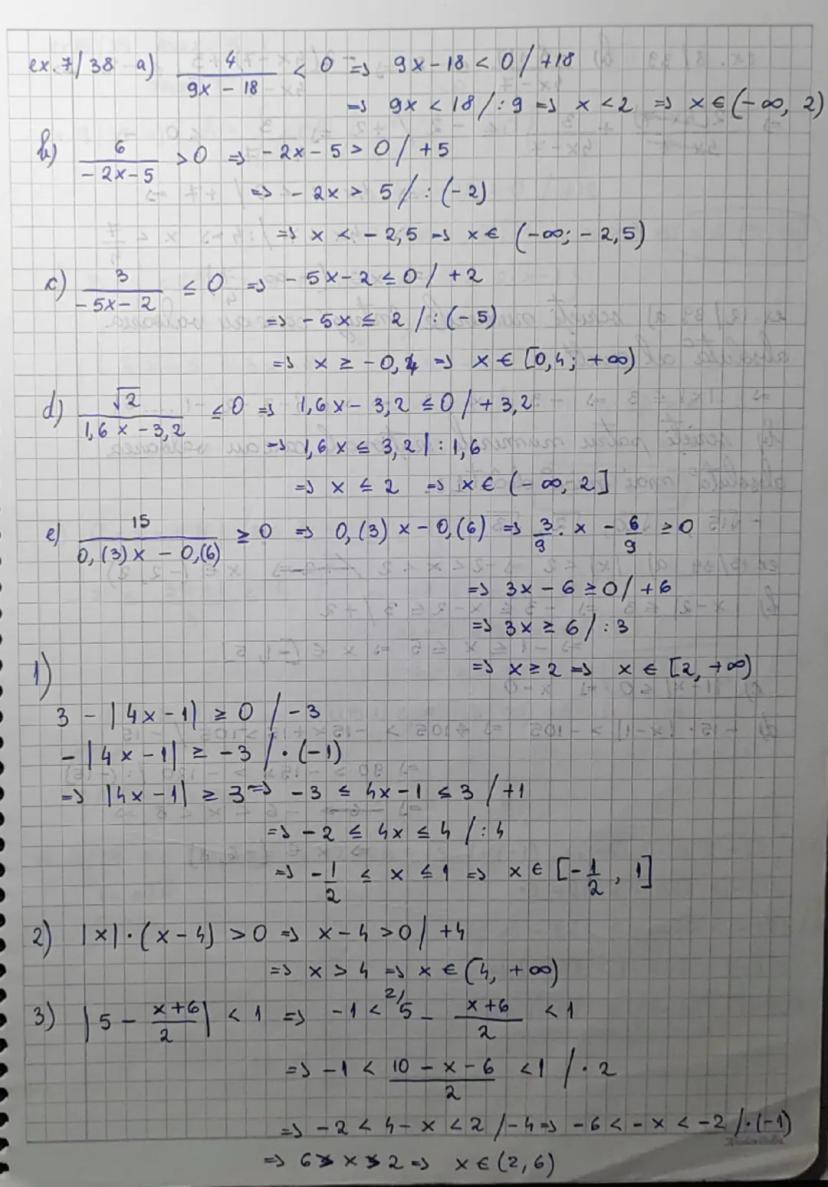 ex. 7/38 a) 4/(9x - 18) < 0 => 9x - 18 < 0 / +18
=> 9x < 18 / : 9 => x < 2 => x ∈ (-∞, 2)
b) 6/(-2x-5) > 0 => -2x - 5 > 0 / +5
=> -2x > 5 / : (-2)
=> x < -2,5 => x ∈ (-∞; -2,5)
c) 3/(-5x-2) ≤ 0 => -5x-2 ≤ 0 / +2
=> -5x ≤ 2 / : (-5)
=> x ≥ -0,4 => x ∈ [0,4; +∞)
d) √2/(1,6x - 3,2) ≤ 0 => 1,6x - 3,2 ≤ 0 / + 3,2
=> 1,6x ≤ 3,2 | : 1,6
=> x ≤ 2 => x ∈ (-∞, 2]
e) 15/(0,(3)x - 0,(6)) ≥ 0 => 0,(3)x - 0,(6) => 3/9 · x - 6/9 ≥ 0
=> 3x - 6 ≥ 0 / +6
=> 3x ≥ 6 / : 3
=> x ≥ 2 => x ∈ [2, +∞)
1)
3 - |4x-1| ≥ 0 / -3
-|4x-1| ≥ -3 / · (-1)
=> |4x-1| ≥ 3 => -3 ≤ 4x-1 ≤ 3 / +1
=> -2 ≤ 4x ≤ 4 / : 4
=> -1/2 ≤ x ≤ 1 => x ∈ [-1/2, 1]
2) |x| · (x-4) > 0 => x-4 > 0 / +4
=> x > 4 => x ∈ (4, +∞)
3) |5 - (x+6)/2| < 1 => -1 < 2/5 - (x+6)/2 < 1
=> -1 < (10 - x - 6)/2 < 1 / · 2
=> -2 < 4 - x < 2 / -4 => -6 < -x < -2 / · (-1)
=> 6 > x > 2 => x ∈ (2, 6)